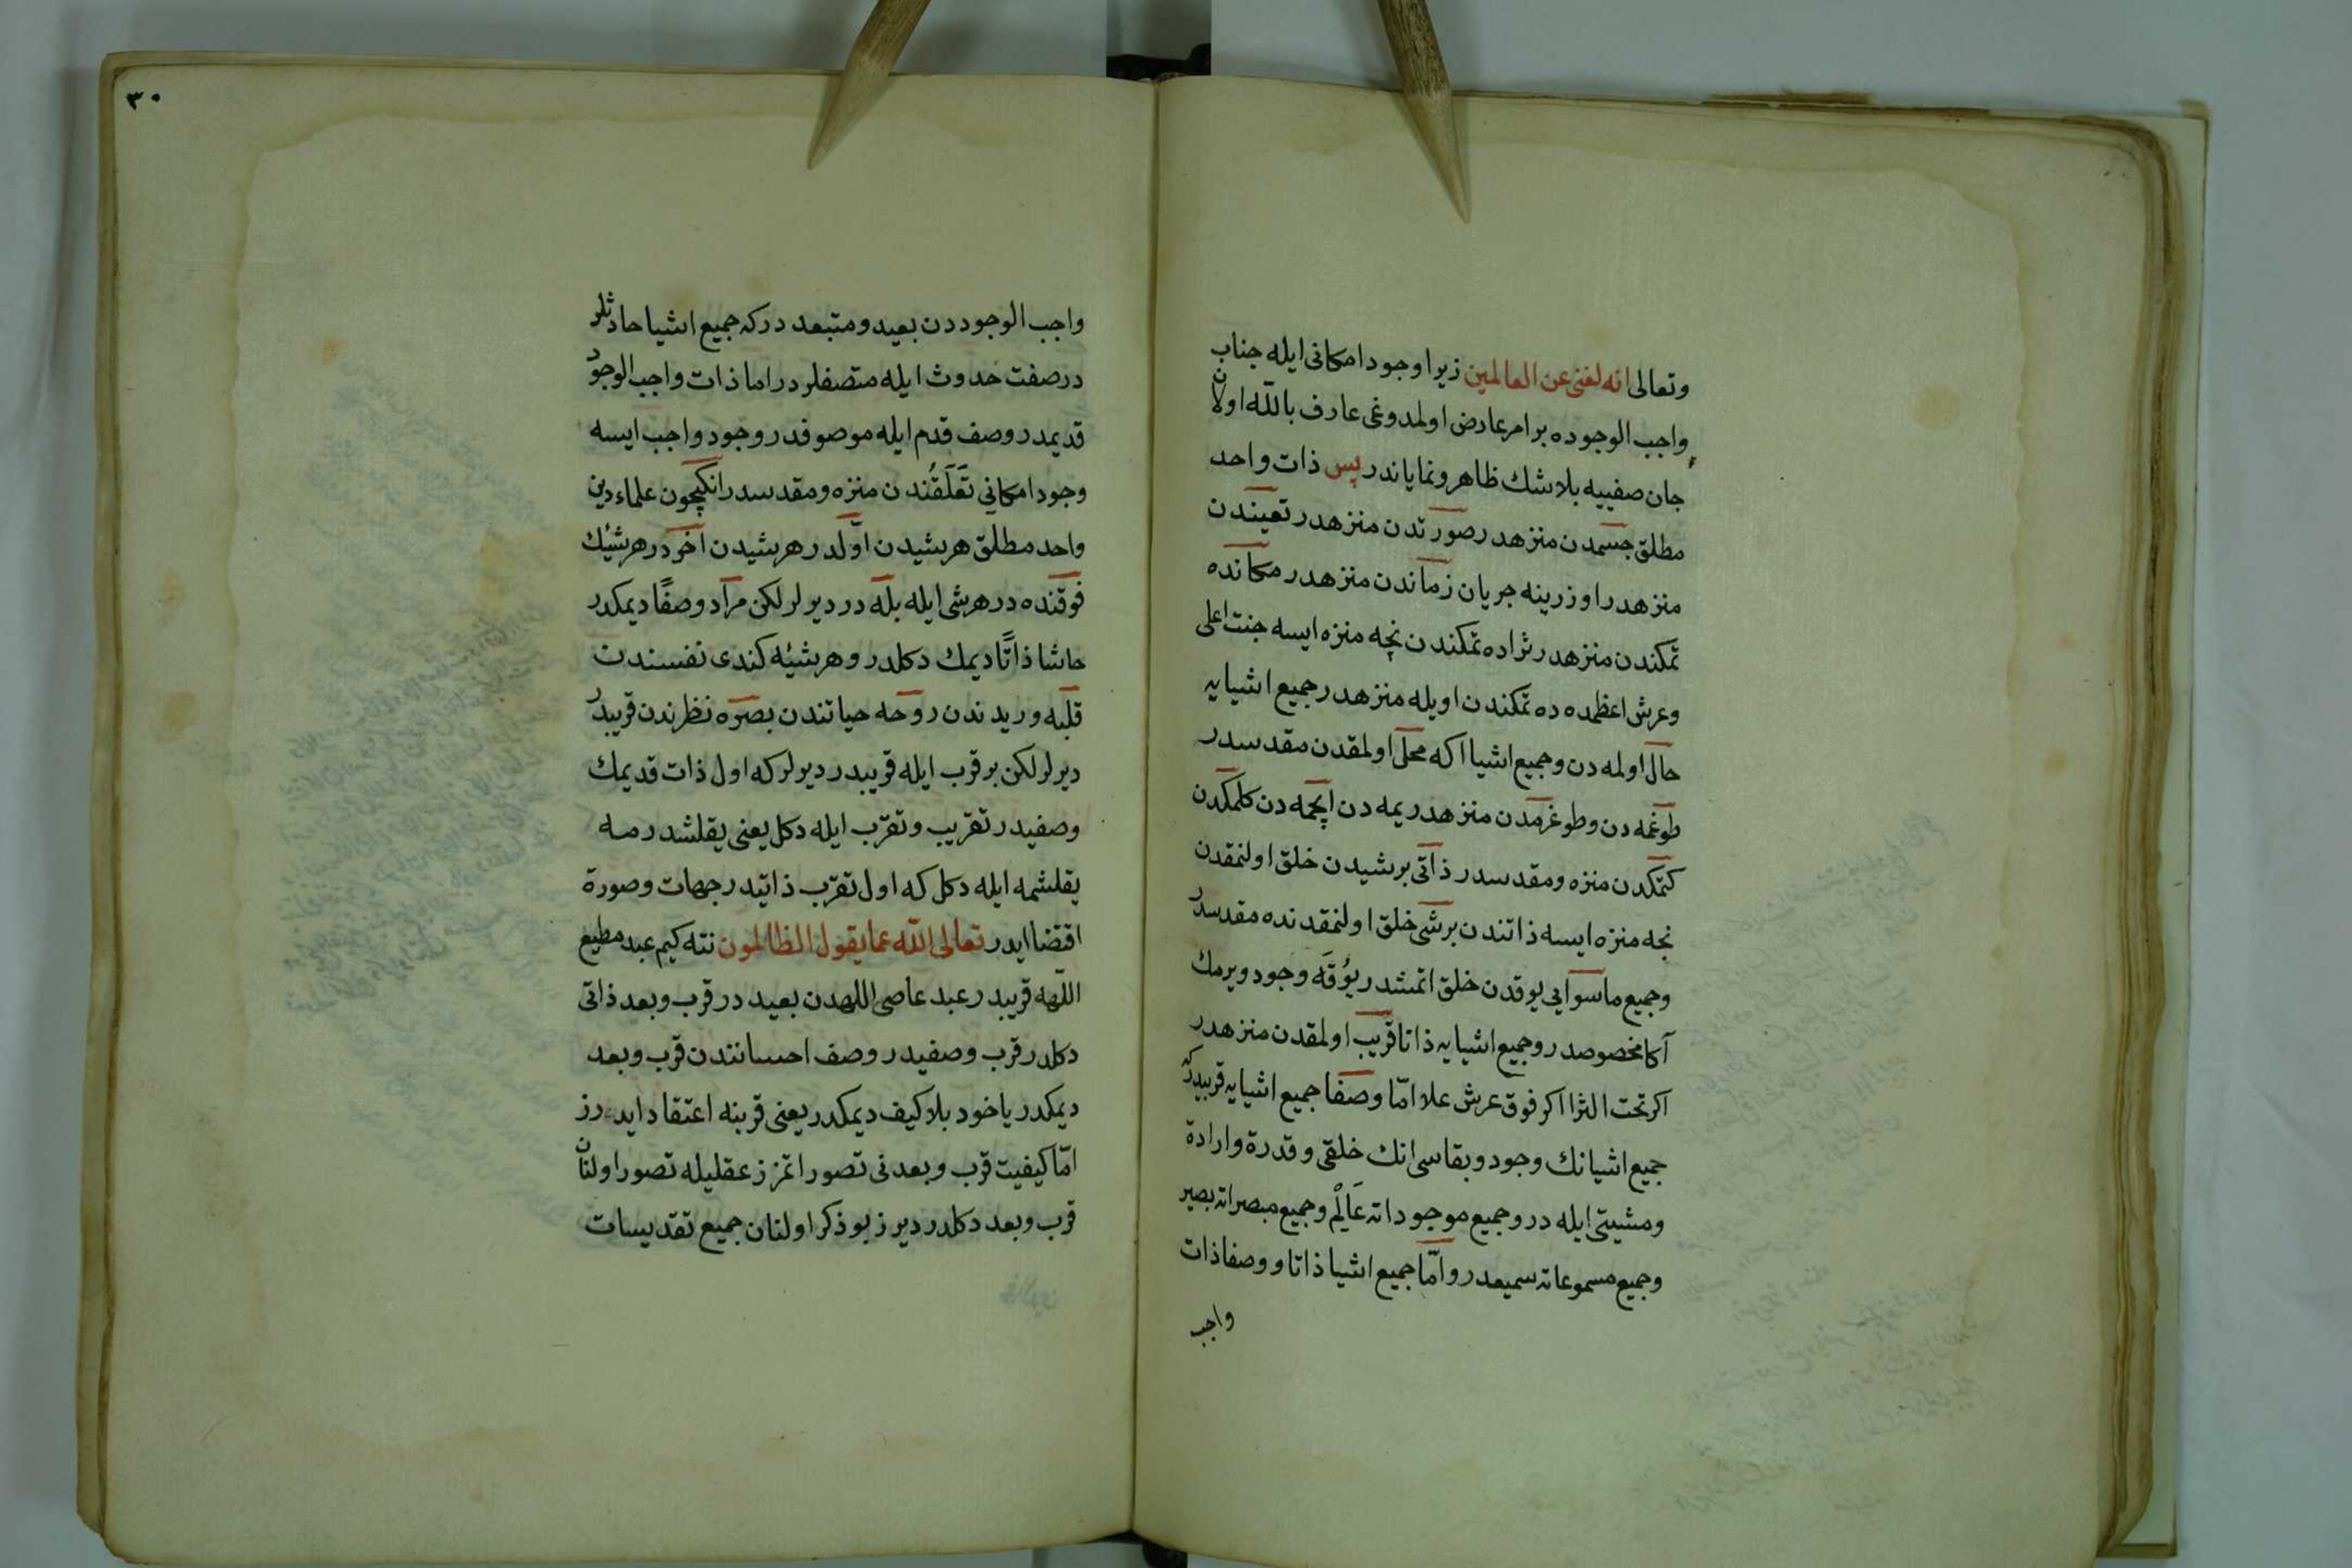 وتعالى انه لغنى عن العالمين زيرا وجود امكانى ايله جناب
واجب الوجوده بر امر عارض اولمدوغى عارف بالله اولان
جان صفييه بلاشك ظاهر ونماياندر پس ذات واحد
مطلق جسمدن منزهدر صورتدن منزهدر تعيندن
منزهدر اوزرينه جريان زماندن منزهدر مكانده
تمكندن منزهدر ثراده تمكندن نچه منزه ايسه جنت اعلى
وعرش اعظمده ده تمكندن اويله منزهدر جميع اشيايه
حال اولمه دن وجميع اشيا اكه محلى اولمقدن مقدسدر
طوغمه دن وطوغرمدن منزهدر يمه دن ايچمه دن كلمكدن
كتمكدن منزه ومقدسدر ذاتى برشيدن خلق اولنمقدن
نجه منزه ايسه ذاتندن برشى خلق اولنمقدنده مقدسدر
وجميع ماسوايى يوقدن خلق اتمشدر يوقه وجود ويرمك
آكا مخصوصدر وجميع اشيايه ذاتا قريب اولمقدن منزهدر
اكر تحت الثرا اكر فوق عرش علا امّا وصفا جميع اشيايه قريبدركه
جميع اشيانك وجود وبقاسى انك خلقى وقدرة وارادة
ومشيتى ايله در وجميع موجوداته عَالِمْ وجميع مبصراته بصير
وجميع مسموعاته سميعدر وامّا جميع اشيا ذاتا ووصفا ذات
واجب
٣٠
واجب الوجوددن بعيد ومتبعد دركه جميع اشيا حادثلر
در صفت حدوث ايله متصفلردر اما ذات واجب الوجود
قديمدر وصف قدم ايله موصوفدر وجود واجب ايسه
وجود امكانى تَعَلُّقُندن منزه ومقدسدر انكيچون علماء دين
واحد مطلق هر شيدن اوّلدر هر شيدن آخردر هر شيئك
فوقنده در هر شى ايله بله در ديرلر لكن مراد وصفًا ديمكدر
حاشا ذاتًا ديمك دكلدر وهر شيئه كندى نفسندن
قلبه وريدندن روحه حياتندن بصره نظرندن قريبدر
ديرلر لكن بر قرب ايله قريبدر ديرلركه اول ذات قديمك
وصفيدر تقريب وتقرّب ايله دكل يعنى يقلشدرمه
يقلشمه ايله دكل كه اول تقرّب ذاتيدر جهات وصورة
اقتضا ايدر تعالى الله عما يقول الظالمون نته كيم عبد مطيع
اللّهه قريبدر عبد عاصى اللهدن بعيد در قرب وبعد ذاتى
دكلدر قرب وصفيدر وصف احسانندن قرب وبعد
ديمكدر ياخود بلا كيف ديمكدر يعنى قربنه اعتقاد ايدرز
امّا كيفيت قرب وبعدنى تصور اتمزز عقليله تصور اولنان
قرب وبعد دكلدر ديرز بو ذكر اولنان جميع تقديسات